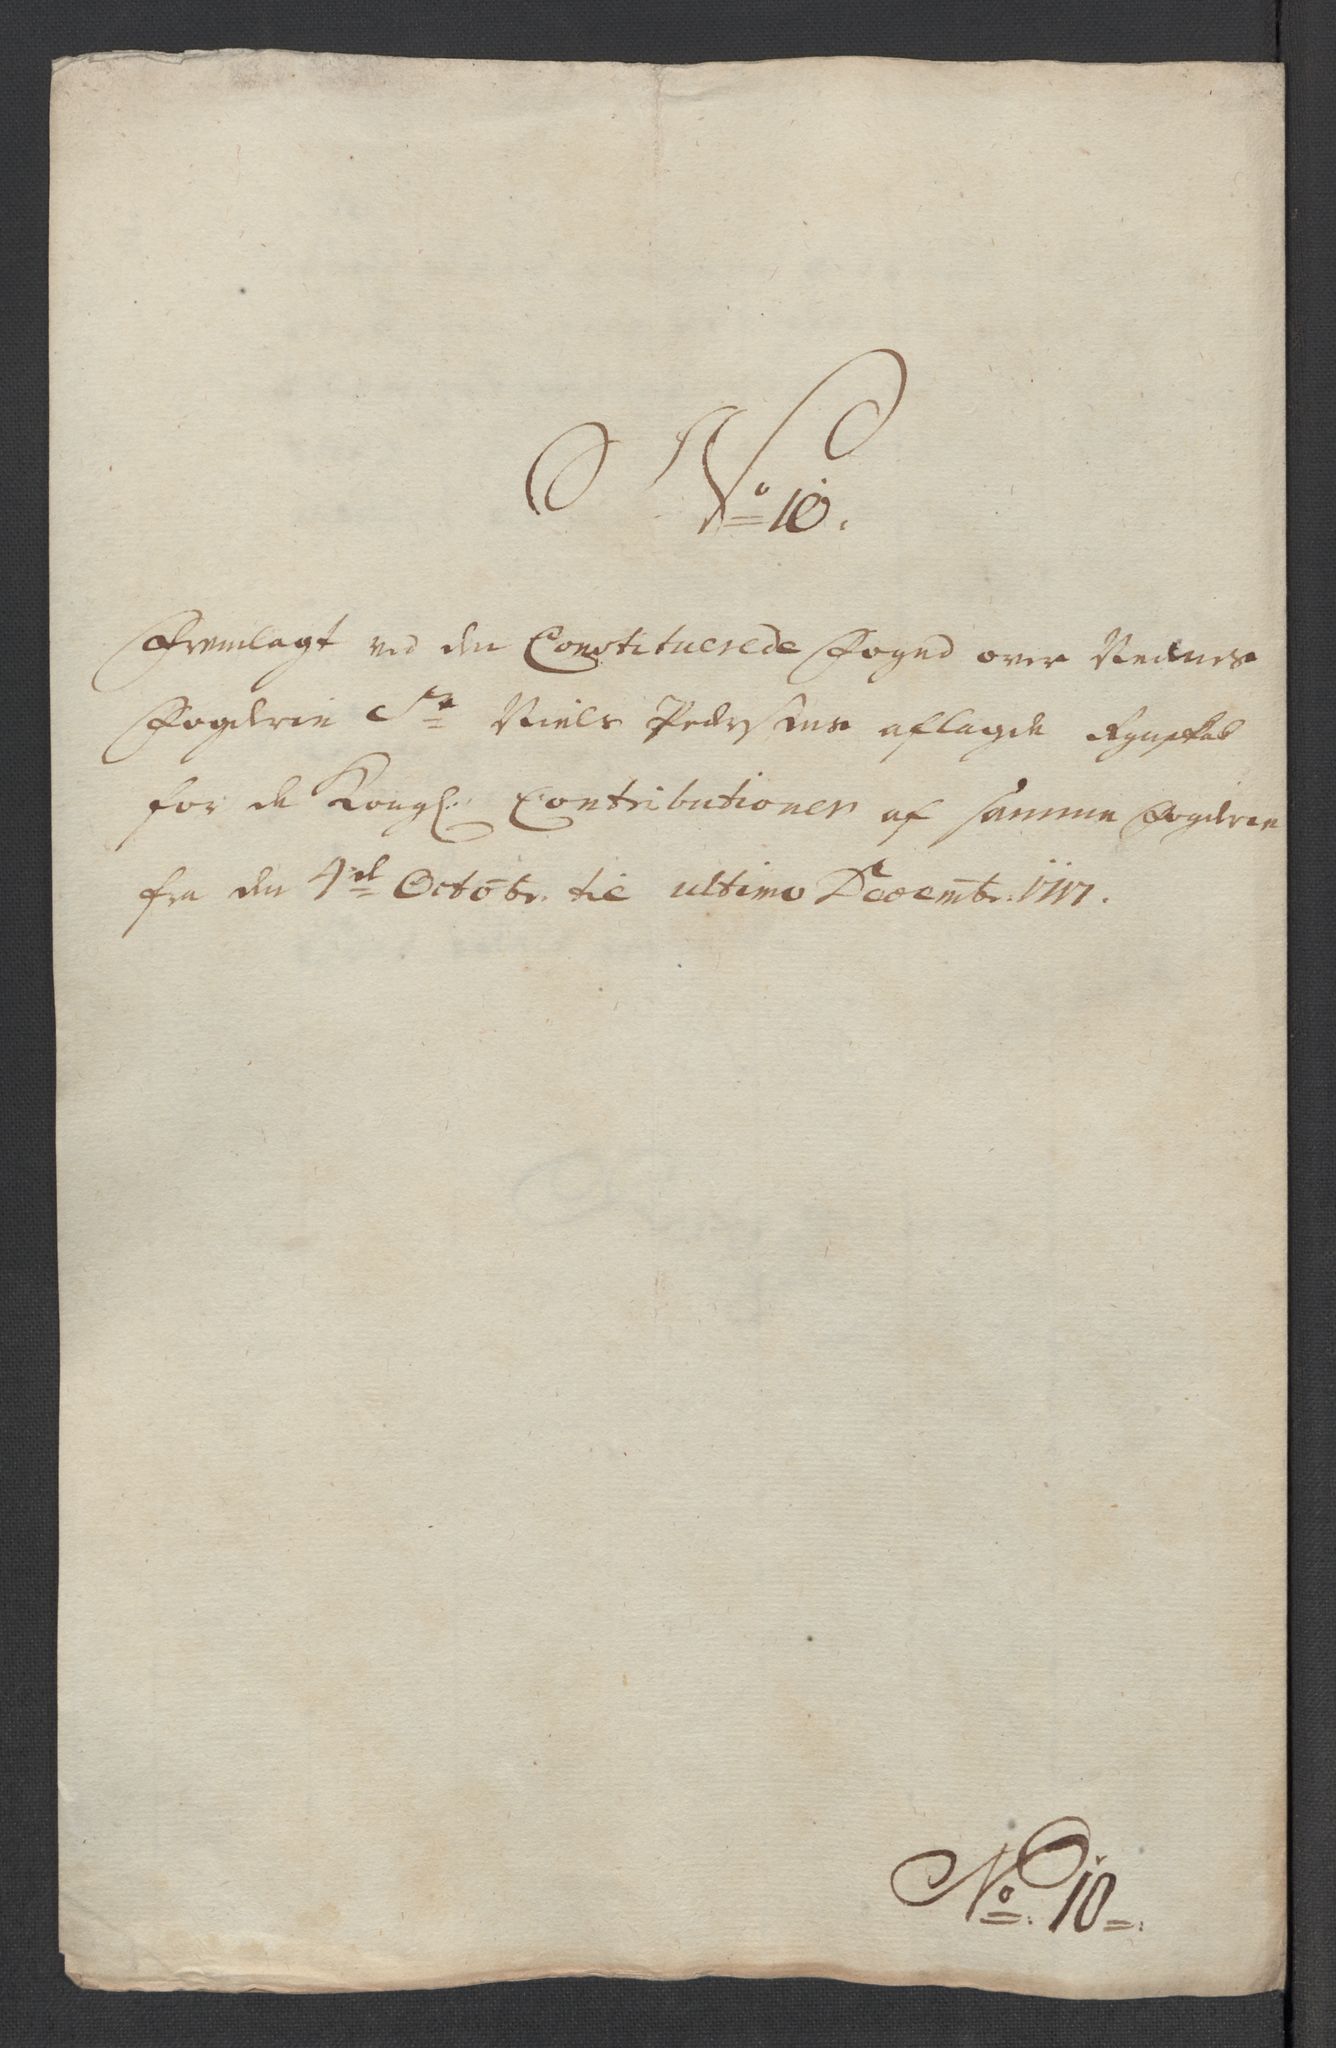 No 10.
Fremlagt ved den Constituerede Foged over Nednes
Fogderie Sr Niels Pedersens aflagde Regnskab
for de Kongl: Contributioner af samme Fogderie
fra den 4de Octobr. til ultimo Decembr: 1717.
No. 10